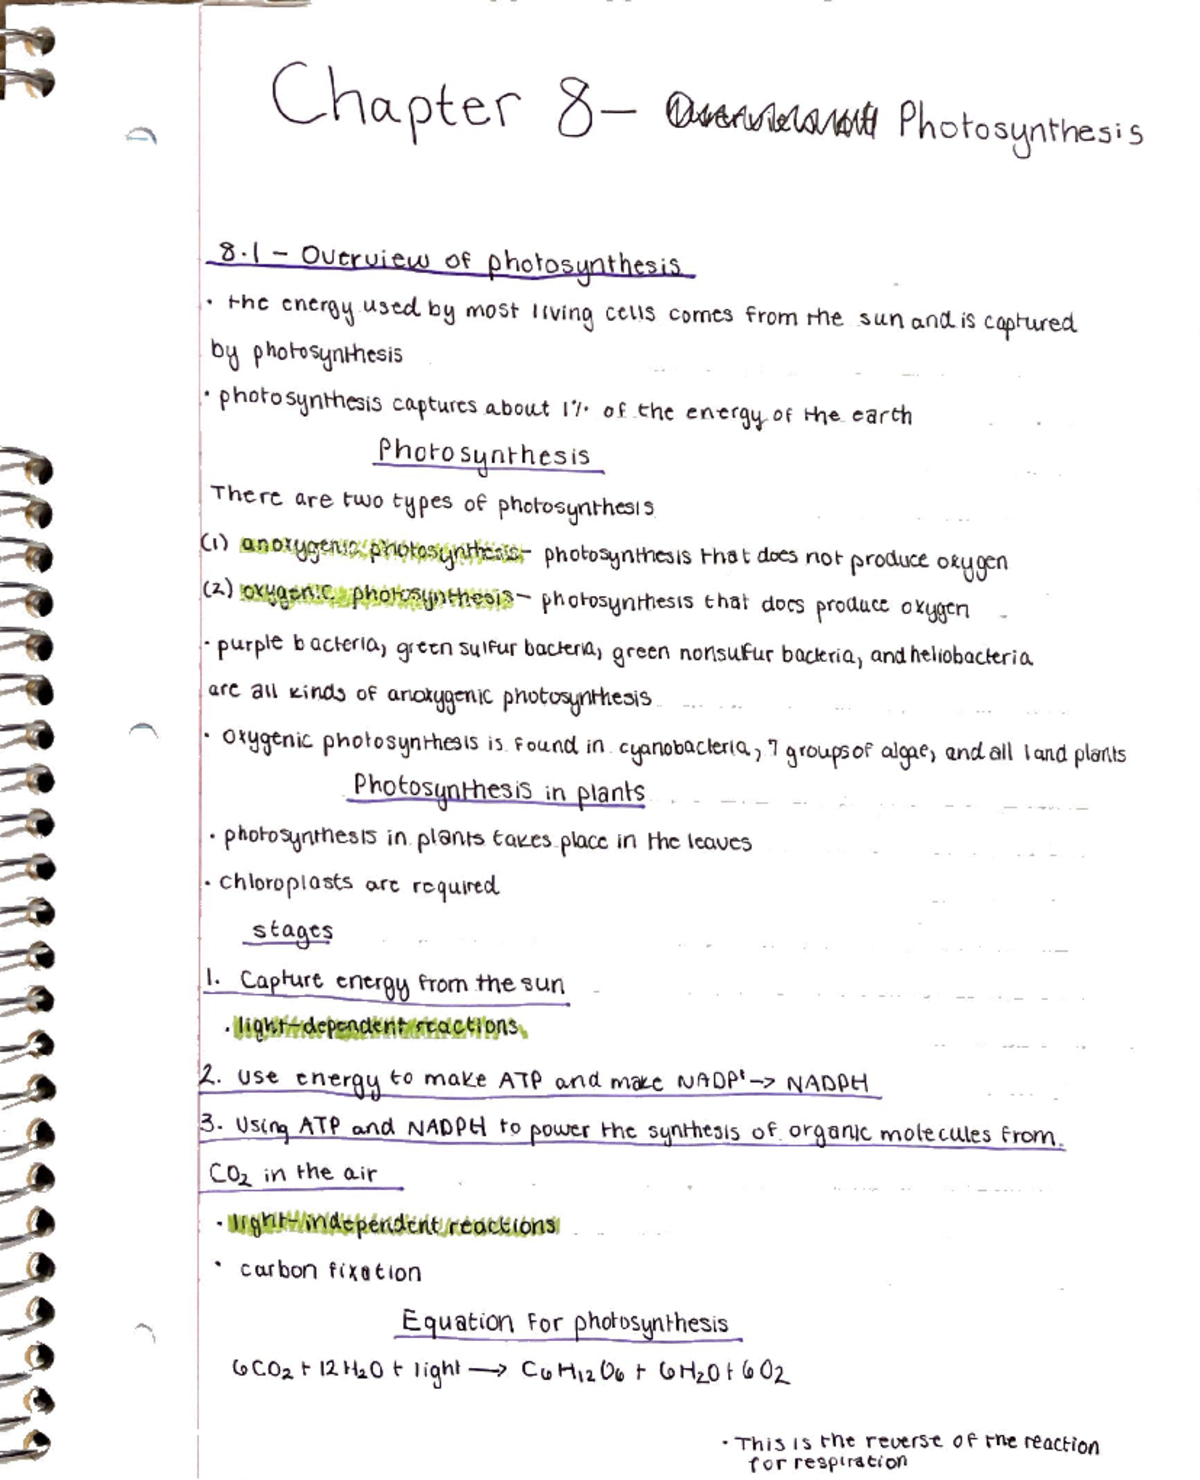 Chapter 8- Photosynthesis
8.1 - Overview of photosynthesis
• the energy used by most living cells comes from the sun and is captured
by photosynthesis
• photosynthesis captures about 1% of the energy of the earth
Photosynthesis
There are two types of photosynthesis
(1) anoxygenic photosynthesis- photosynthesis that does not produce oxygen
(2) oxygenic photosynthesis- photosynthesis that does produce oxygen
• purple bacteria, green sulfur bacteria, green nonsufur bacteria, and heliobacteria
are all kinds of anoxygenic photosynthesis
• oxygenic photosynthesis is found in cyanobacteria, 7 groups of algae, and all land plants
Photosynthesis in plants
• photosynthesis in plants takes place in the leaves
• chloroplasts are required
stages
1. Capture energy from the sun
• light-dependent reactions
2. Use energy to make ATP and make NADP⁺-> NADPH
3. Using ATP and NADPH to power the synthesis of organic molecules from
CO₂ in the air
• light-independent reactions
• carbon fixation
Equation for photosynthesis
6CO₂ + 12H₂O + light → C₆H₁₂O₆ + 6H₂O + 6O₂
• This is the reverse of the reaction
for respiration